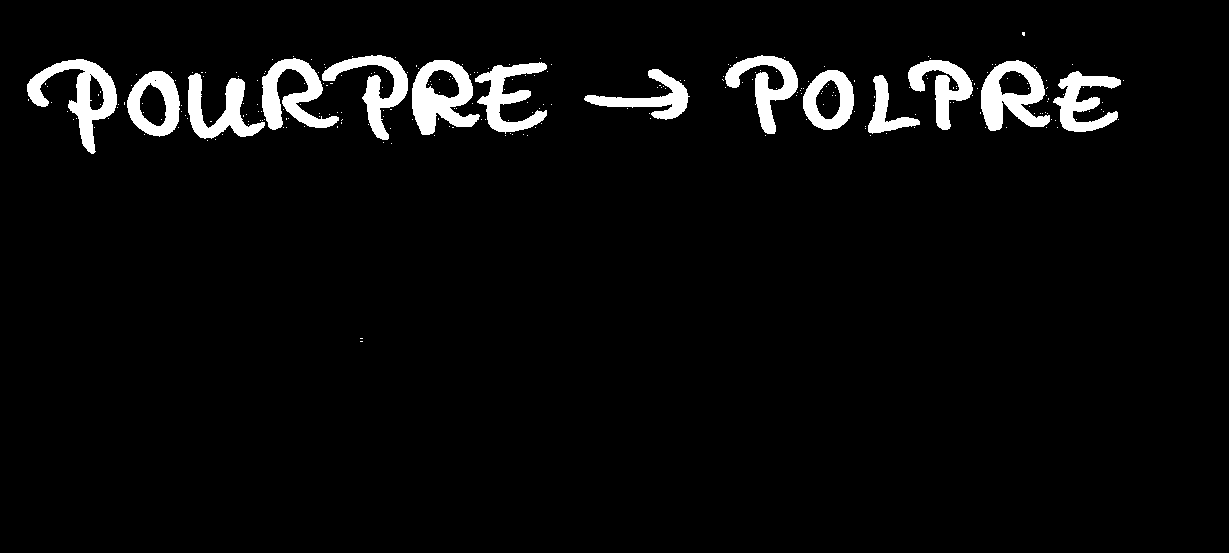 POURPRE → POLPRE